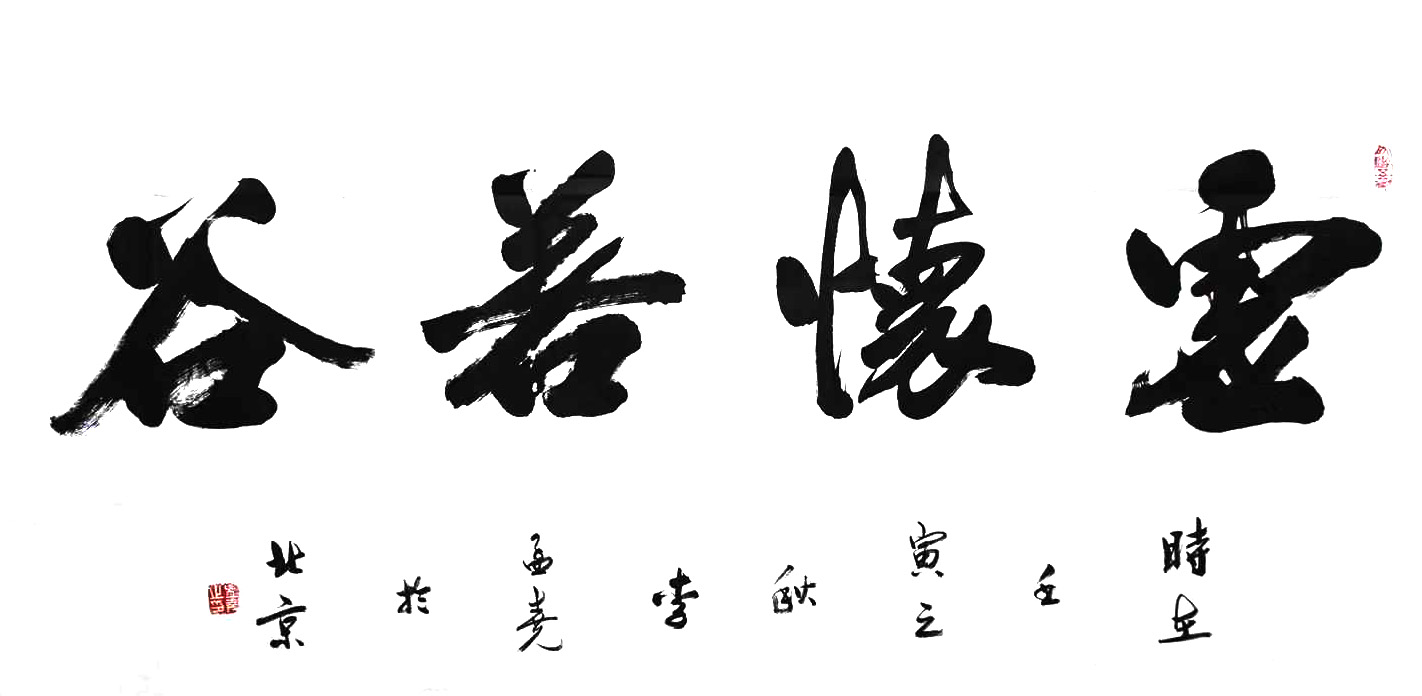 虛懷若谷
時在壬寅之秋李孟堯於北京